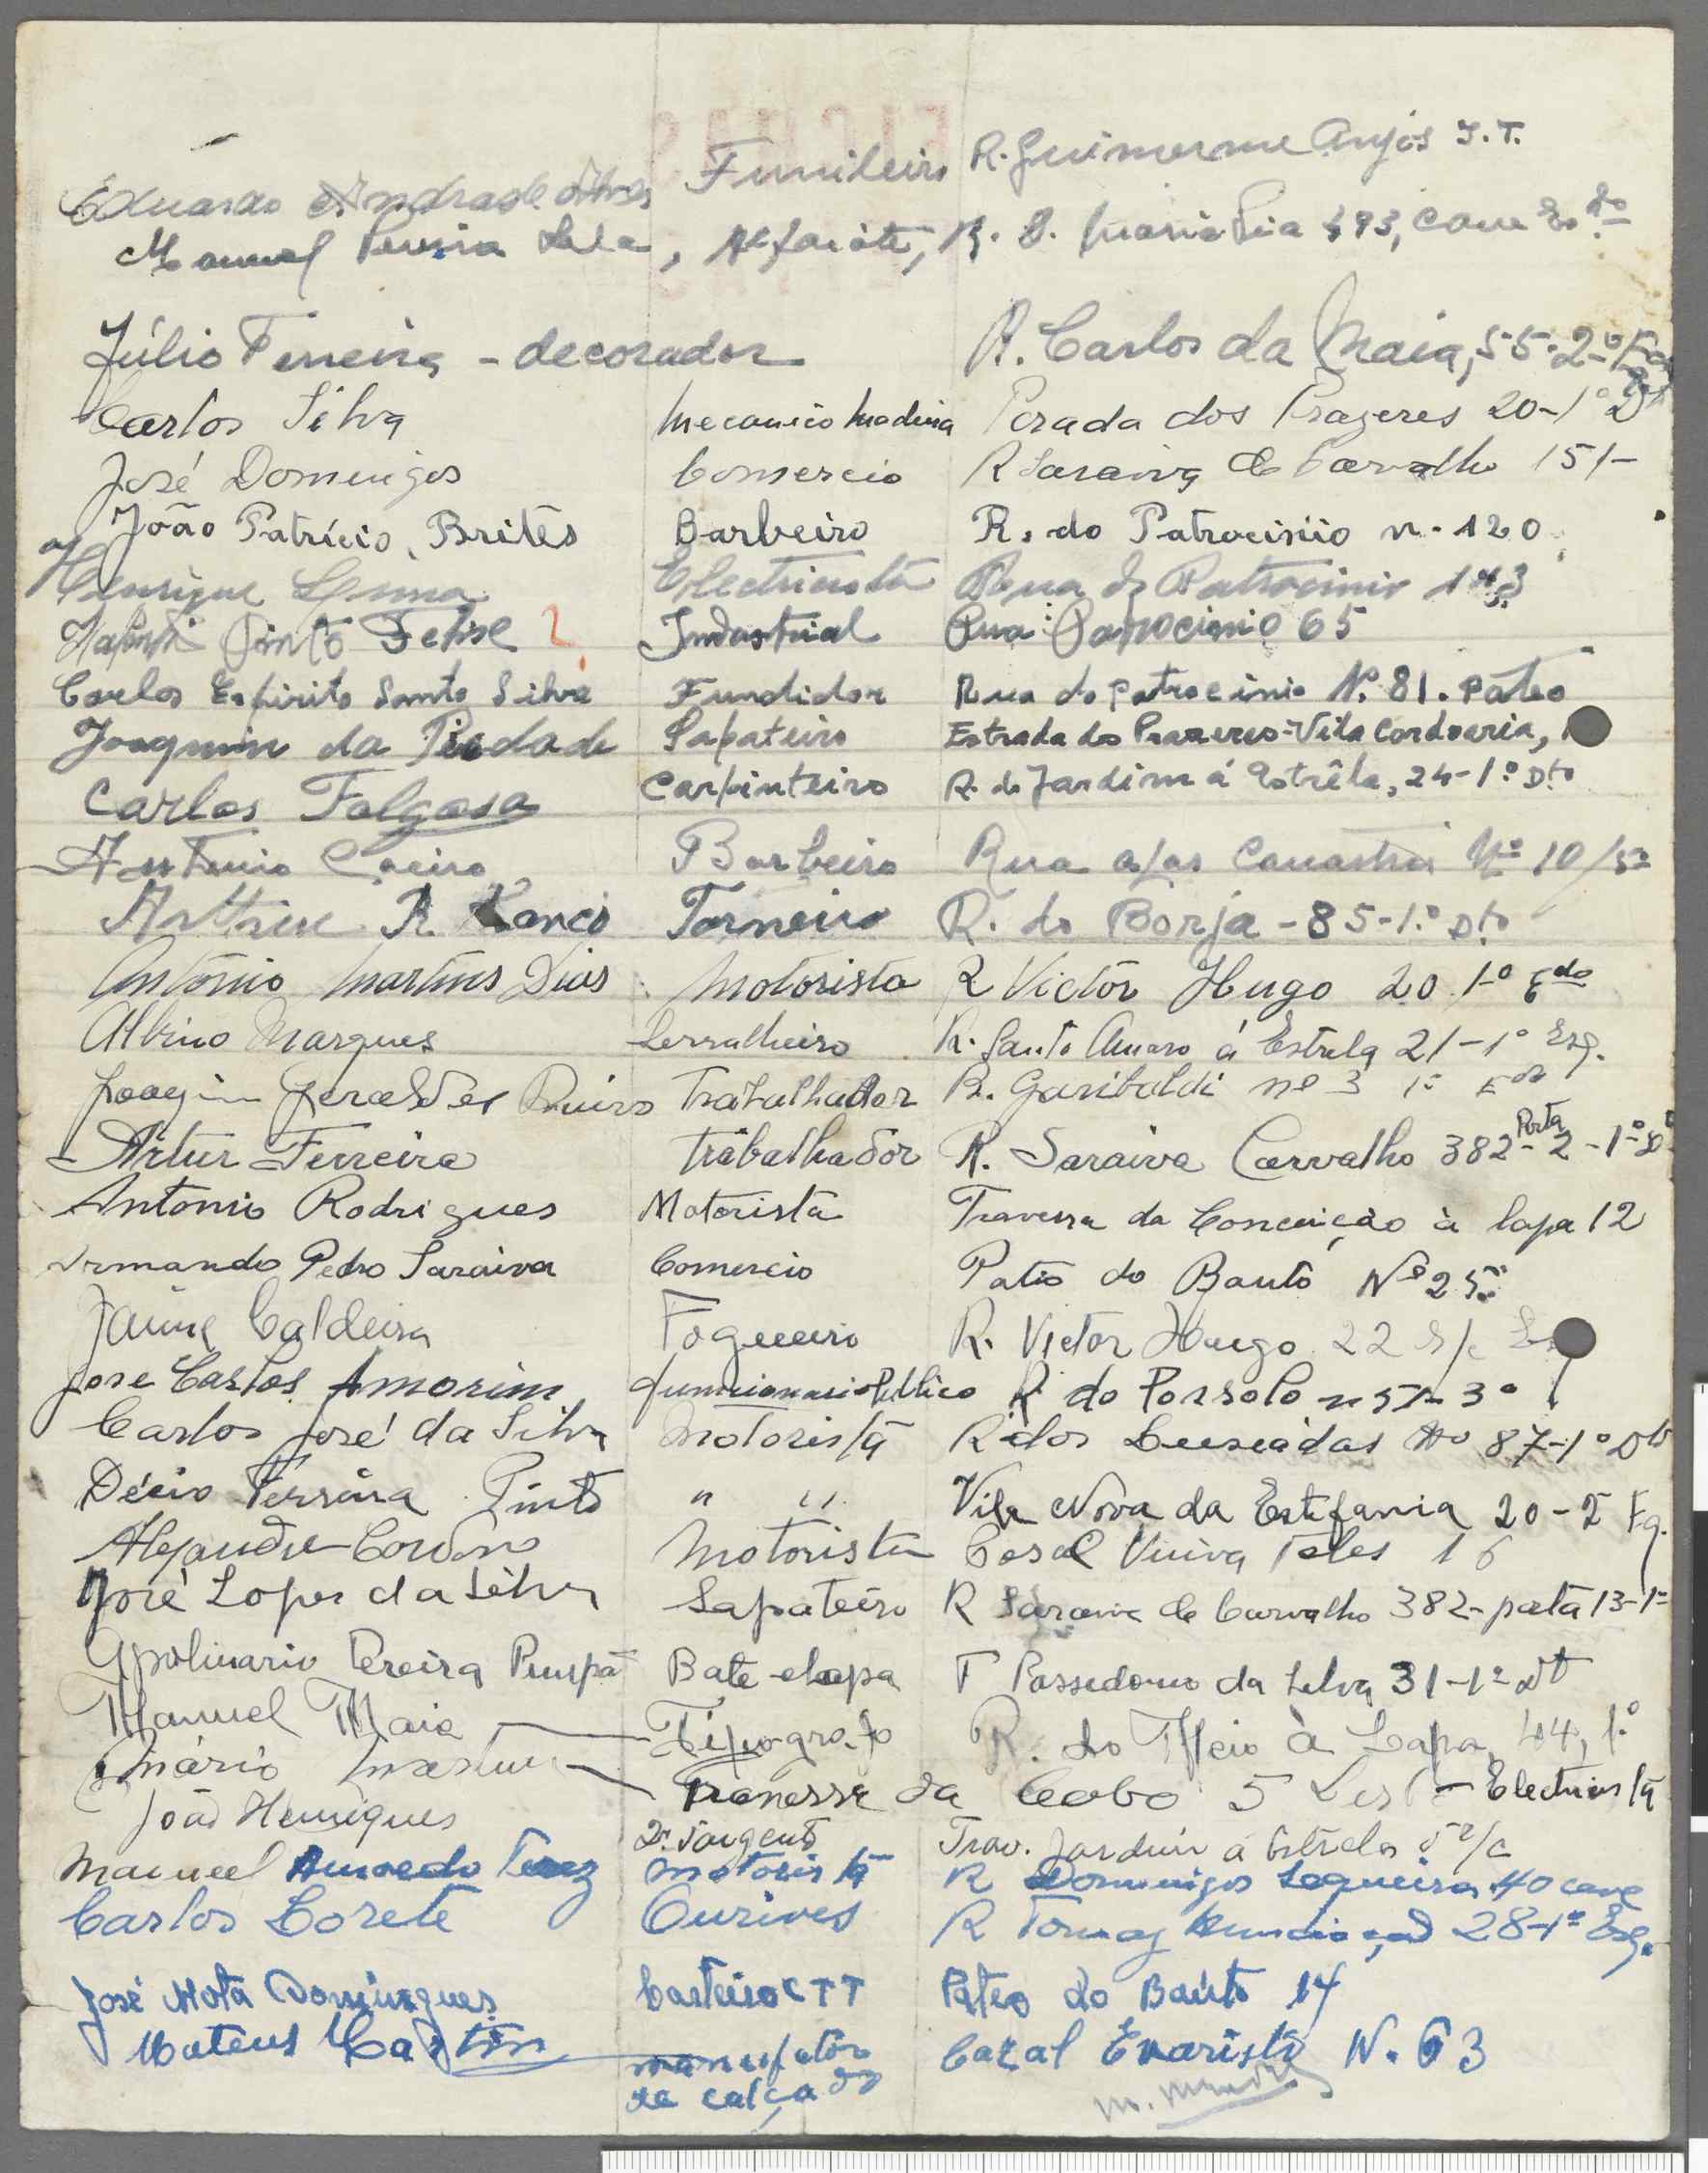 Eduardo Andrade Alves Funileiro R. Guimerme Anjos J. T.
Manuel Pereira, Alfaiate, R. D. Maria Pia 493, cave
Júlio Ferreira - decorador R. Carlos da Maia, 55-2º
Carlos Silva Mecanico Madeira Parada dos Prazeres 20-1º Dt
José Domingos Comercio R Saraiva de Carvalho 151-
João Patrício Brites Barbeiro R. do Patrocisiio n- 120
Henrique Lima Electricista Rua do Patrocinio
Pinto Felise ? Industrial Rua Patrocinio 65
Carlos Espirito Santo Silva Fundidor Rua do Patrocinio Nº 81. Pateo
Joaquim da Piedade Sapateiro Estrada dos Prazeres-Vila Cordoaria,
Carlos Folgosa Carpinteiro R. do Jardim á Estrêla, 24-1º Dto
Antonio Caeiro Barbeiro Rua Nº 10
R. Torneiro R. do Borja - 85-1.º Dto
António Martins Dias Motorista R Victor Hugo 20 1º Edo
Albino Marques Serralheiro R. Santo Amaro á Estrela 21-1º Esq.
Joaqim Geraldes Trabalhador R. Garibaldi nº 3 1º
Artur Ferreira trabalhador R. Saraiva Carvalho 382-Porta 2-1º
Antonio Rodrigues Motorista Travessa da Conceição à Lapa 12
Armando Pedro Saraiva Comercio Patio do Bauto Nº 25
Jaime Caldeira Fogueeiro R. Victor Hugo 22
Jose Carlos Amorim funcionario Publico R. do Possolo 3º
Carlos José da Silva Motorista R. dos Lusiadas Nº 87-1º Dto
Décio Ferreira Pinto " " Vila Nova da Estefania 20-2
Alejandre Cordono Motorista Casal Viuva Teles 16
José Lopes da Silva Sapateiro R Saraiva de Carvalho 382-porta 13-1º
Apolinario Pereira Bate-chapa T Possedonio da Selva 31-1º Dt
Manuel Maia Tipografo R. do Meio à Lapa, 44, 1.º
Mário Travessa da Cobo 5 - Electricista
João Henriques 2º Sargento Trav. Jardim á Estrela
Manuel Motorista R Domingos Sequeira 40 cave
Carlos Lorete Ourives R Tomaz Anunciação 28-1º Esq.
José Mota Domingues Carteiro CTT Pateo do Baúto 14
Mateus manufator
de calçado Cazal Evaristo N. 63